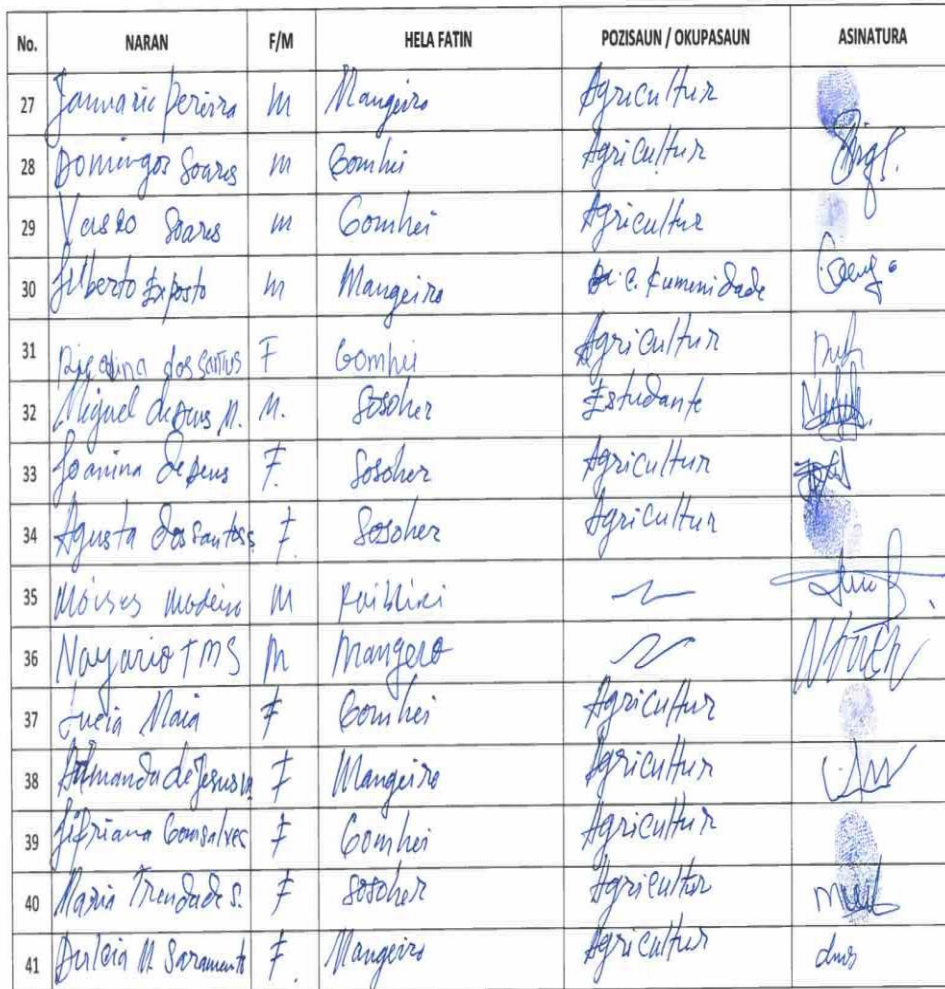 No. NARAN F/M HELA FATIN POZISAUN / OKUPASAUN ASINATURA
27 Januario Pereira M Mangeiro Agricultur
28 Domingos Soares M Gomhei Agricultur
29 Vasco Soares M Gomhei Agricultur
30 Filberto Exposto M Mangeiro C. Kumunidade
31 dos Santos F Gomhei Agricultur
32 Miguel de Deus M. M. Sosoher Estudante
33 Joanina de Deus F. Sosoher Agricultur
34 Agusta dos Santoss F. Sosoher Agricultur
35 Moises Madeira M
36 Nayario TMS M Mangero
37 Lucia Maia F Gomhei Agricultur
38 Armanda de Jesus F Mangeiro Agricultur
39 Sipriana Gonsalves F Gomhei Agricultur
40 Maria Trendade S. F Sosoher Agricultur
41 Dulcia M. Saramento F. Mangeiro Agricultur